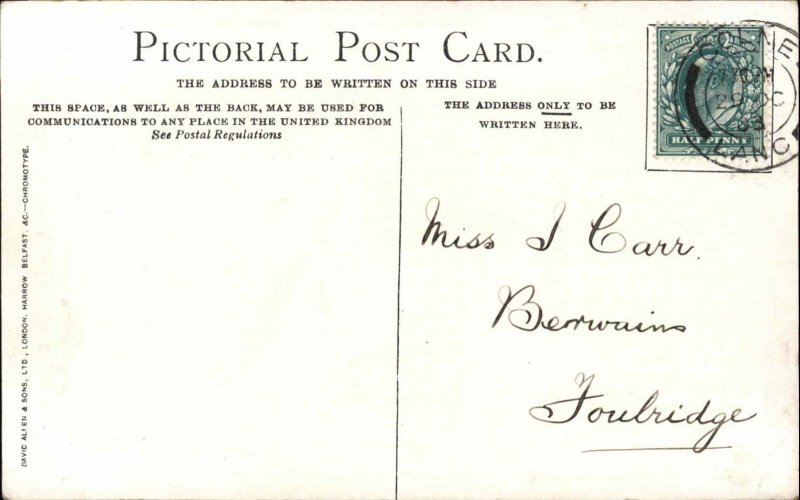 PICTORIAL POST CARD.
THE ADDRESS TO BE WRITTEN ON THIS SIDE
THIS SPACE, AS WELL AS THE BACK, MAY BE USED FOR
COMMUNICATIONS TO ANY PLACE IN THE UNITED KINGDOM
See Postal Regulations
THE ADDRESS ONLY TO BE
WRITTEN HERE.
POSTAGE
HALFPENNY
COLNE
LANC
Miss J Carr.
Berrwains
Foulridge
DAVID ALLEN & SONS, LTD., LONDON, HARROW BELFAST, &C.—CHROMOTYPE.